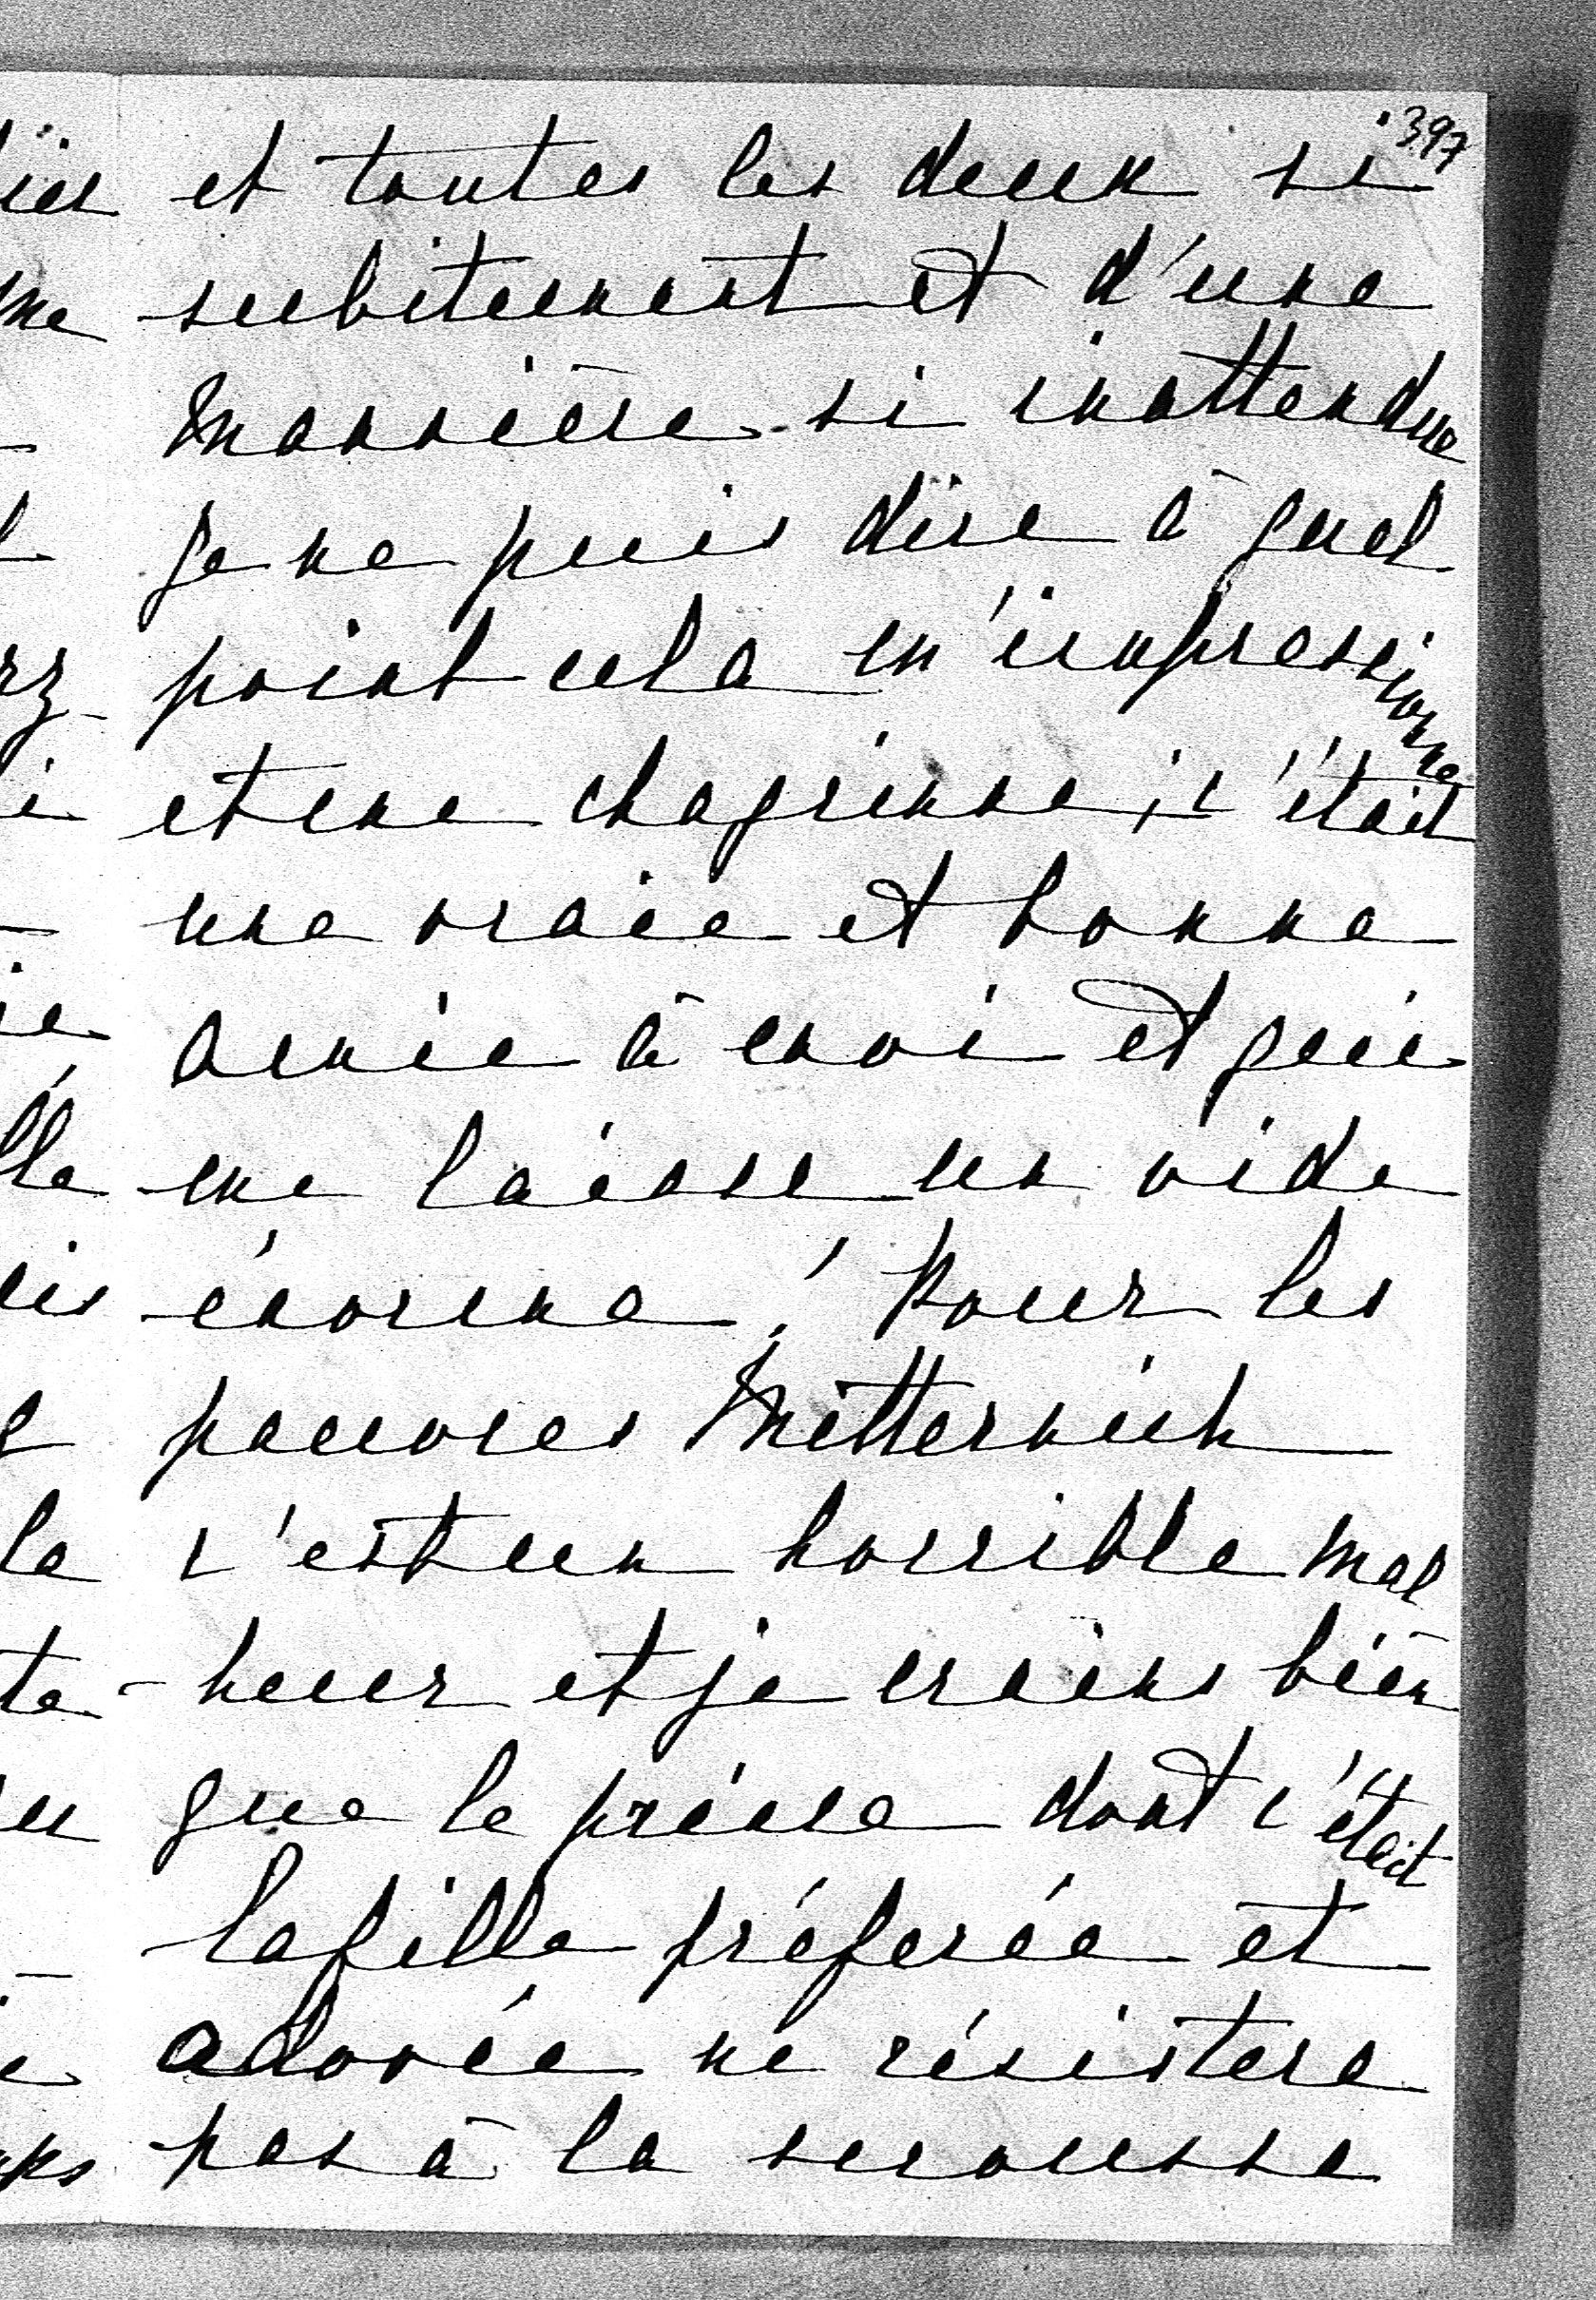 397
et toutes les deux si
subitement et d'une
mannière si inattendue
je ne puis dire à quel
point cela m'impressionne
et me chagrinne ; c'était
une vraie et bonne
amie à moi et qui
me laisse un vide
énorme ! Pour les
pauvres Metternich
c'est un horrible mal
-heur et je crains bien
que le prince dont c'était
la fille préferée et
adorée ne résistera
pas à la secousse